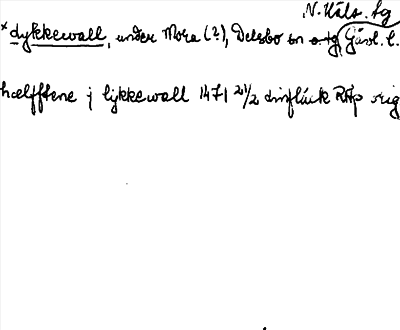 N. Häls. tg
*dykkewall, under Mora (?), Delsbo sn o. tg Gävl. l.
hælfftene j lykkewall 1471 21/2 Dipl. RAp orig